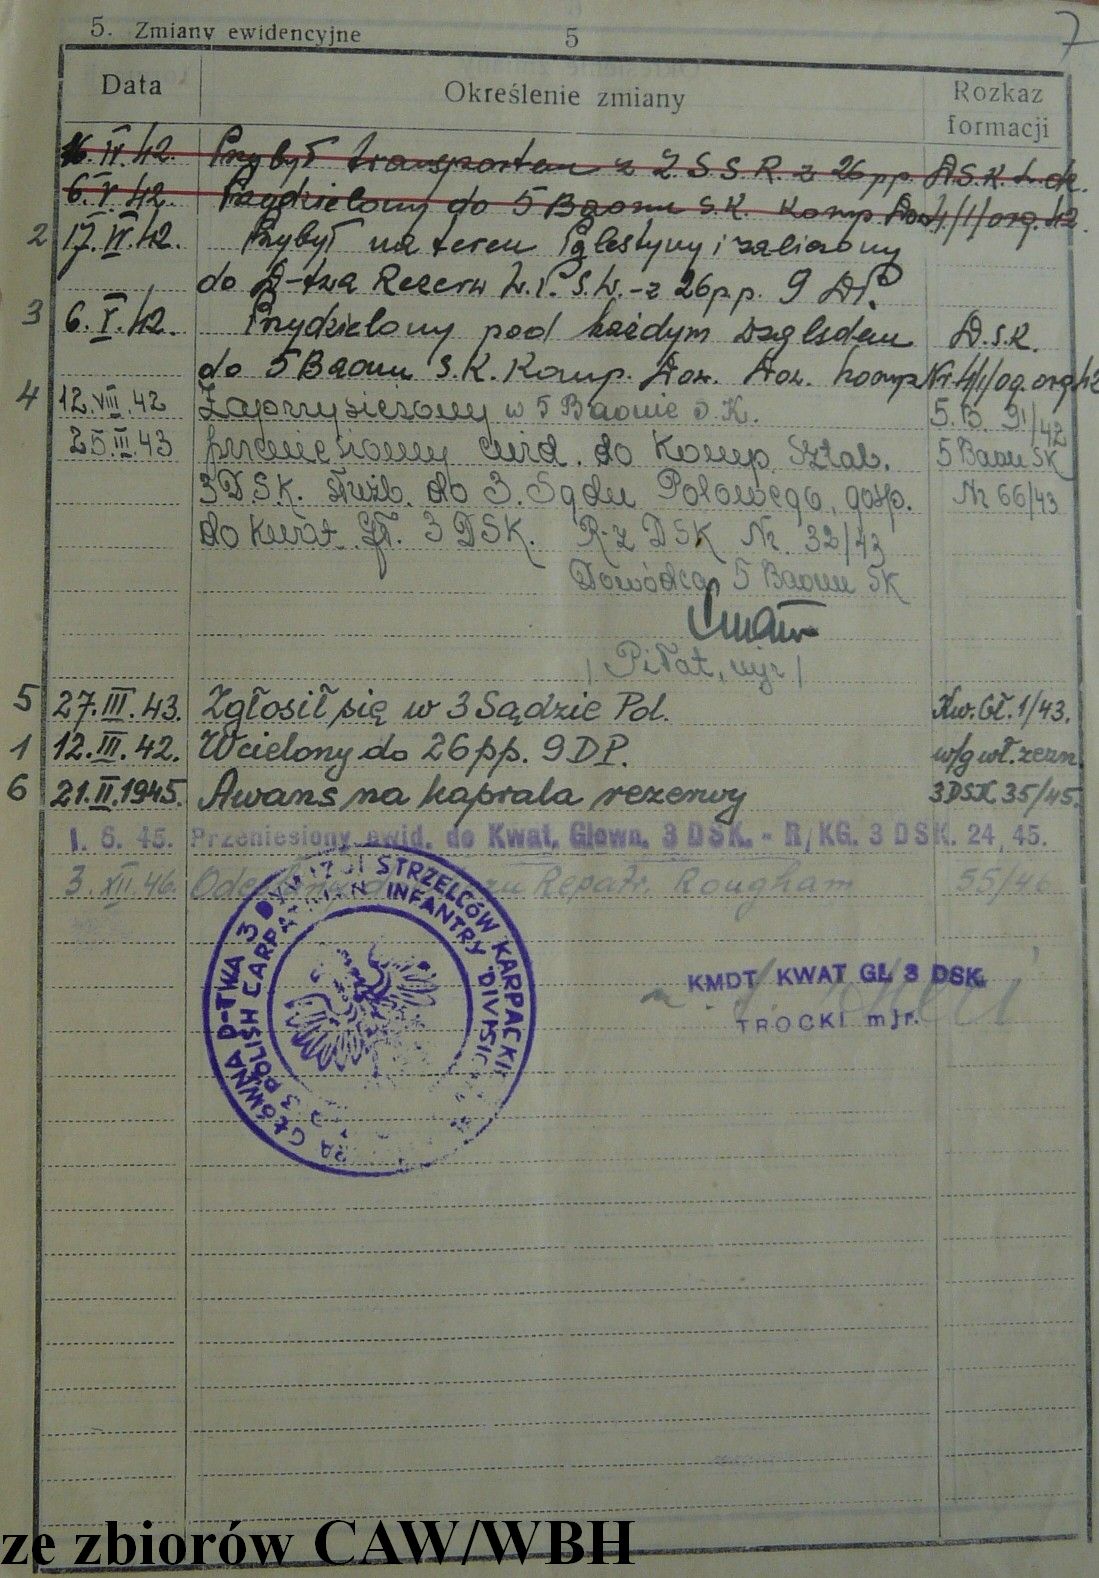 5. Zmiany ewidencyjne 5 7
Data Określenie zmiany Rozkaz formacji
16.IV.42. Przybył transportem z Z.S.S.R. z 26 pp. D.S.K.
6.V.42. Przydzielony do 5 Baonu S.K. Komp. 4/1/org.42
2 17.IV.42. Przybył na teren Palestyny i zaliczony
do D-twa Rezerw W.P.Ś.W. - z 26 p.p. 9 DP.
3 6.V.42. Przydzielony pod każdym względem D.S.K.
do 5 Baonu S.K. Komp. Dow. Dow. komp. Nr.4/1/og.org.42
4 12.VIII.42 Zaprzysiężony w 5 Baonie S.K. 5.B. 91/42
25.III.43 przeniesiony ewid. do Komp. Sztab. 5 Baou SK
3 DSK. służb. do 3. Sądu Polowego, gosp. Nr 66/43
do Kwat. Gł. 3 DSK. R-z DSK Nr. 32/43
Dowódca 5 Baonu SK
/ Piłat, mjr /
5 27.III.43. Zgłosił się w 3 Sądzie Pol. Kw.Gł.1/43.
1 12.III.42. Wcielony do 26 pp. 9 DP. w/g wł. zezn.
6 21.II.1945. Awans na kaprala rezerwy 3DSK.35/45.
1. 6. 45. Przeniesiony ewid. do Kwat. Głown. 3 DSK. - R/KG. 3 DSK. 24, 45.
3.XII.46. Repatr. Rougham 55/46
GŁÓWNA D-TWA 3 DYWIZJI STRZELCÓW KARPACKICH
3 POLISH CARPATHIAN INFANTRY DIVISION
KMDT KWAT GŁ 3 DSK.
TROCKI mjr.
ze zbiorów CAW/WBH